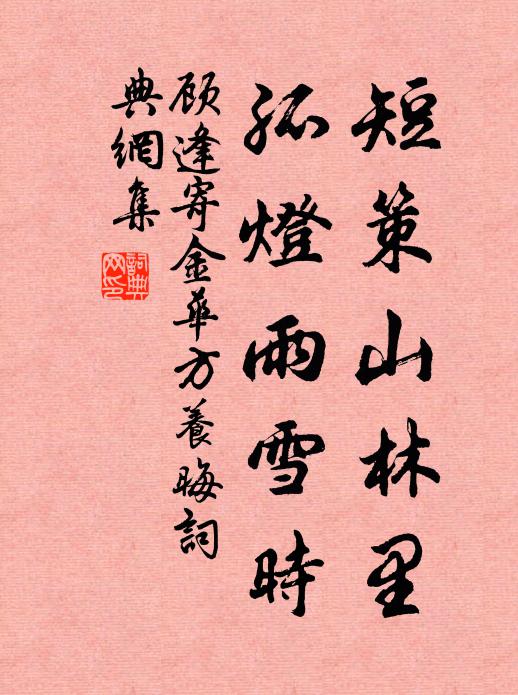 短策山林里
孤燈雨雪時
顾逢寄金華方養晦詞
典網集
詞典網印